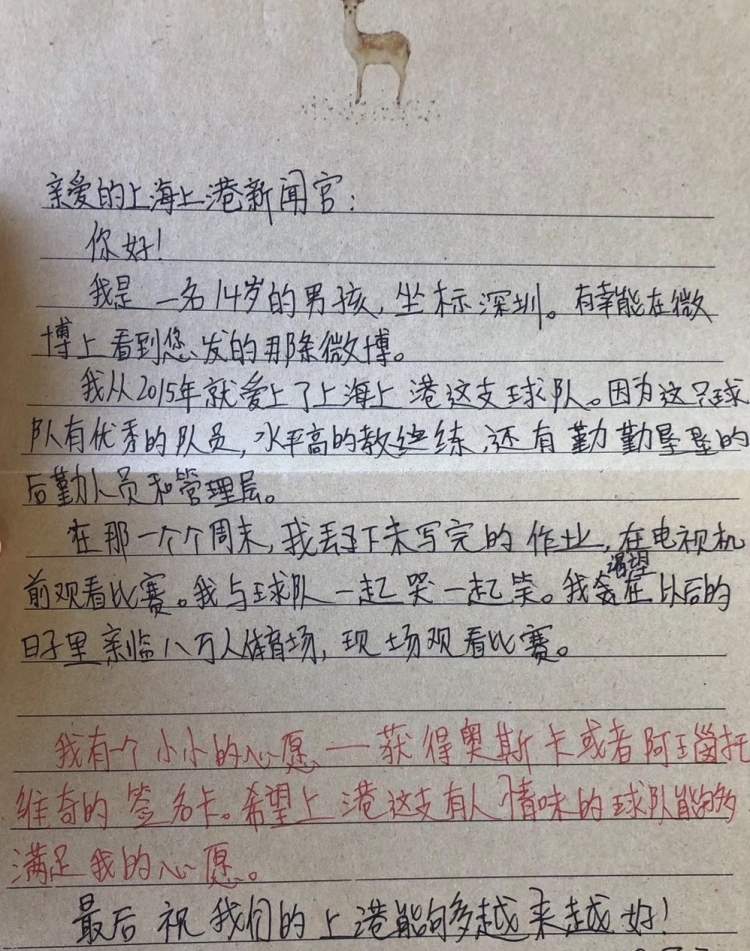 亲爱的上海上港新闻官：
你好！
我是一名14岁的男孩，坐标深圳。有幸能在微
博上看到您发的那条微博。
我从2015年就爱上了上海上港这支球队。因为这只球
队有优秀的队员，水平高的教练，还有勤勤垦垦的
后勤人员和管理层。
在那一个个周末，我丢下未写完的作业，在电视机
前观看比赛。我与球队一起哭一起笑。我渴望在以后的
日子里亲临八万人体育场，现场观看比赛。
我有一个小小的心愿——获得奥斯卡或者阿瑙托
维奇的签名卡。希望上港这支有人情味的球队能够
满足我的心愿。
最后祝我们的上港能够越来越好！